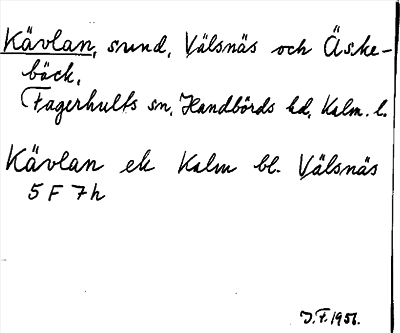 Kävlan, sund, Välsnäs och Äske-
bäck,
Fagerhults sn, Handbörds hd, Kalm. l.
Kävlan ek Kalm bl. Välsnäs
5 F 7 h
J.F. 1956.